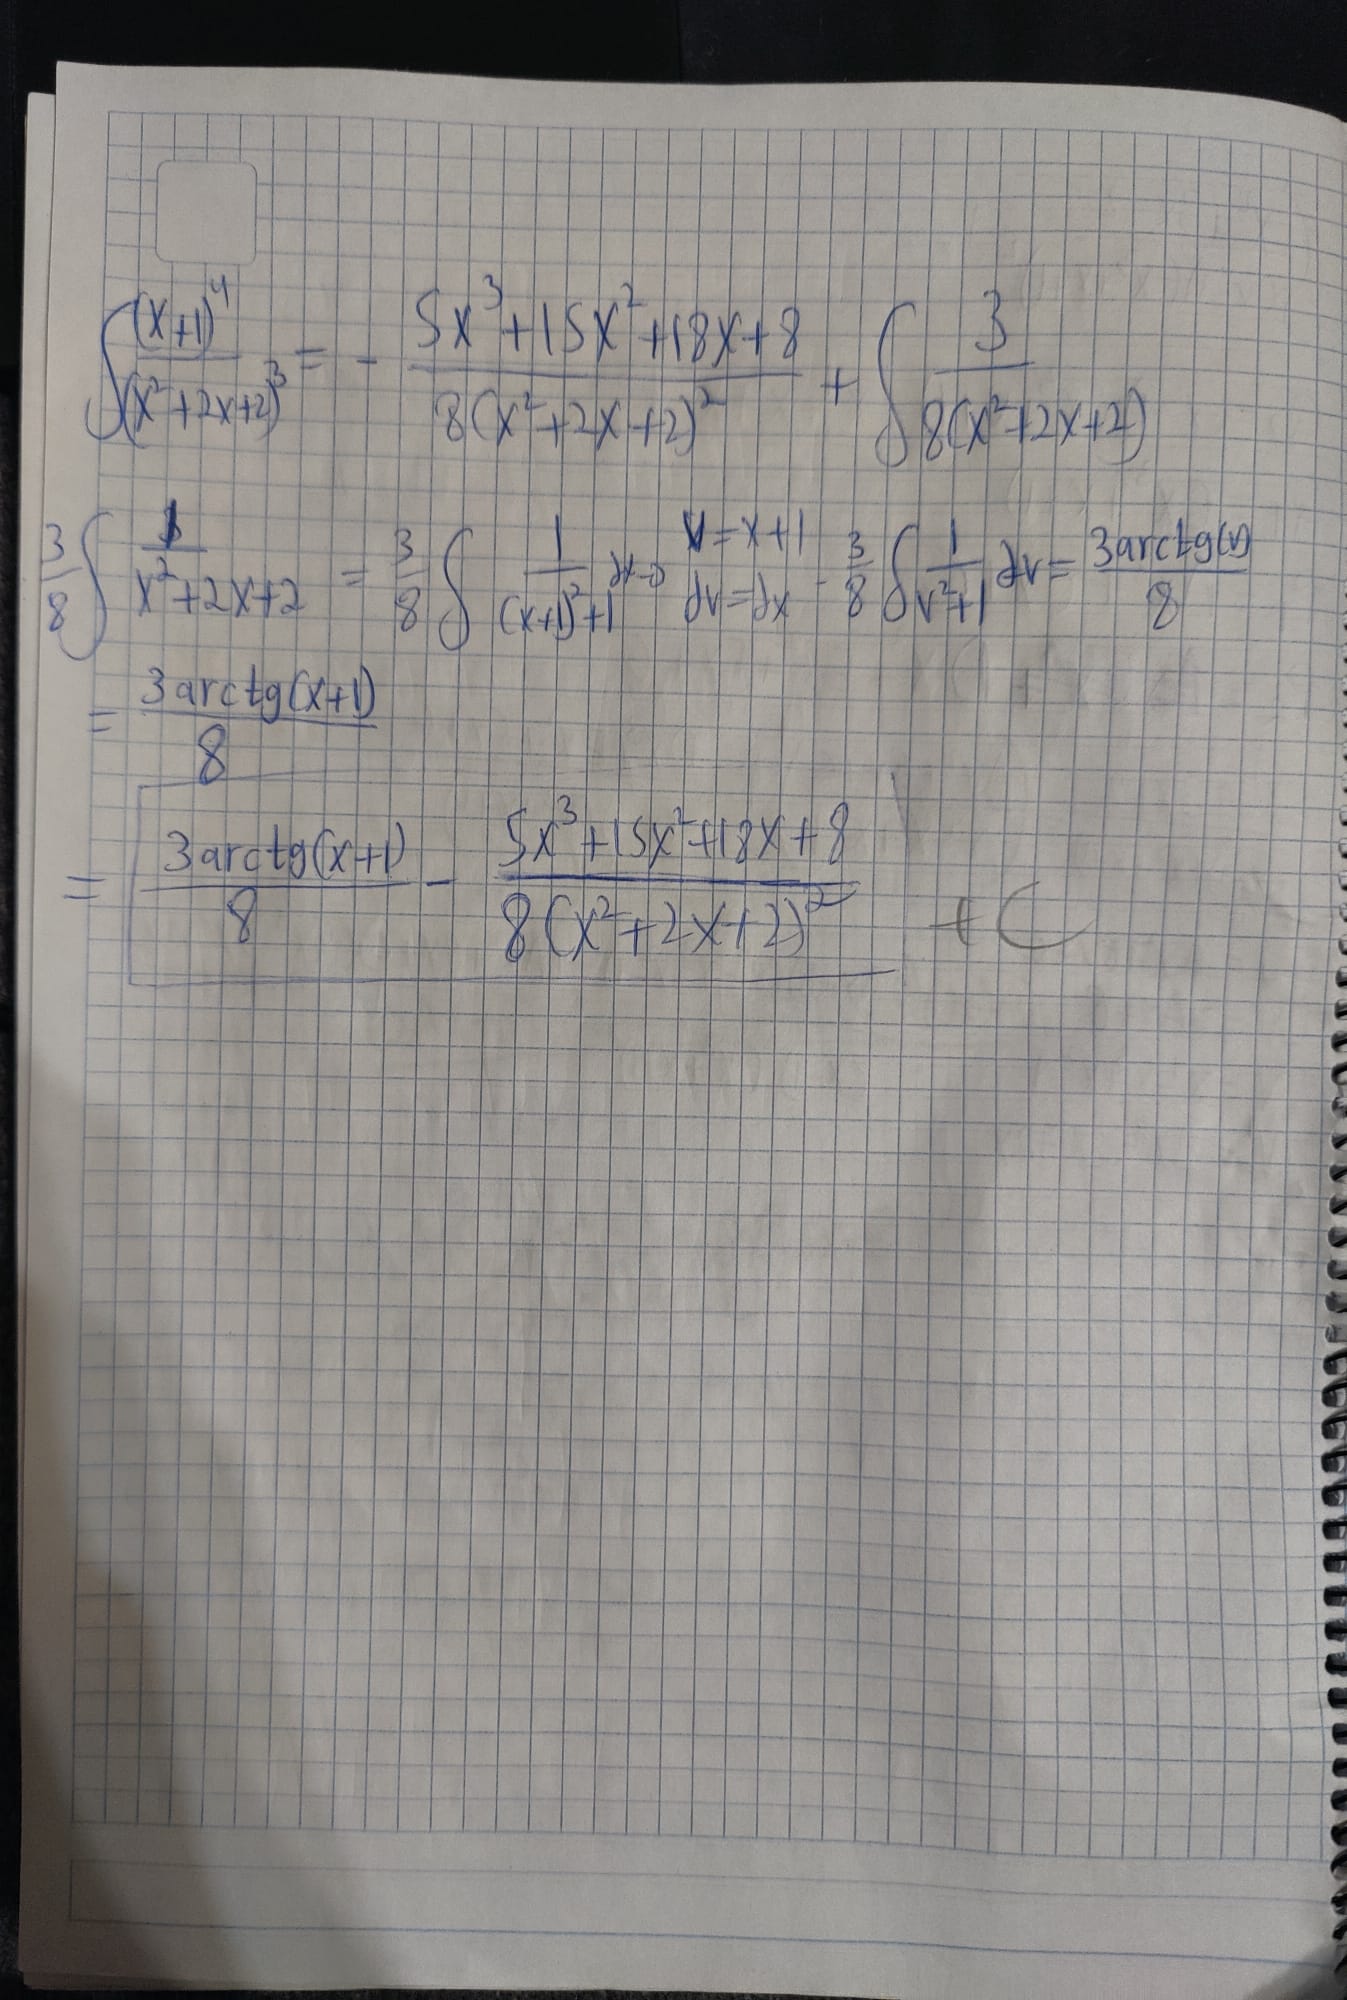 ∫ (x+1)⁴/(x²+2x+2)³ = - (5x³+15x²+18x+8)/(8(x²+2x+2)²) + ∫ 3/(8(x²+2x+2))
3/8 ∫ 1/(x²+2x+2) = 3/8 ∫ 1/((x+1)²+1) dx → v=x+1 dv=dx - 3/8 ∫ 1/(v²+1) dv = 3arctg(v)/8
= 3arctg(x+1)/8
= 3arctg(x+1)/8 - (5x³+15x²+18x+8)/(8(x²+2x+2)²) + C